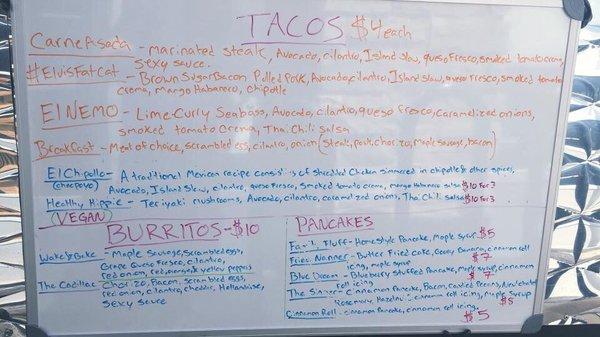 TACOS $4 each
Carne Asada - marinated steak, Avocado, cilantro, Island Slaw, queso Fresco, smoked tomato crema,
Sexy sauce.
#ElvisFatCat - Brown Sugar Bacon Pulled Pork, Avocado, cilantro, Island Slaw, queso Fresco, smoked tomato
crema, mango Habanero, chipotle
El NEMO - Lime-Curry Seabass, Avocado, cilantro, queso fresco, caramelized onions,
smoked tomato Crema, Thai Chili salsa
Breakfast - Meat of choice, scrambled egg, cilantro, onion (steak, pork, chorizo, maple Sausage, bacon)
El Chipollo - A traditional Mexican recipe consists of shredded Chicken simmered in chipotle & other spices,
Avocado, Island Slaw, cilantro, queso Fresco, Smoked tomato crema, mango Habanero salsa $10 for 3
Healthy Hippie - Teriyaki mushrooms, Avocado, cilantro, caramelized onions, Thai Chili salsa $10 for 3
(VEGAN)
BURRITOS - $10
Wake & Bake - Maple Sausage, Scrambled eggs,
Queso Fresco, cilantro,
red onion, red, orange & yellow peppers
The Cadillac - Chorizo, Bacon, Scrambled eggs,
red onion, cilantro, cheddar, Hollandaise,
Sexy Sauce
PANCAKES
Fluff - Homestyle Pancake, Maple Syrup $5
Fried Nanner - Butter Fried Cake, Banana, cinnamon roll
icing, maple syrup $7
Blue Dream - Blueberry Stuffed Pancake, Maple Syrup, cinnamon
roll icing $7
The Sinner - Cinnamon Pancake, Bacon, Candied Pecans,
Rosemary, cinnamon roll icing, Maple Syrup $8
Cinnamon Roll - cinnamon Pancake, cinnamon roll icing $5